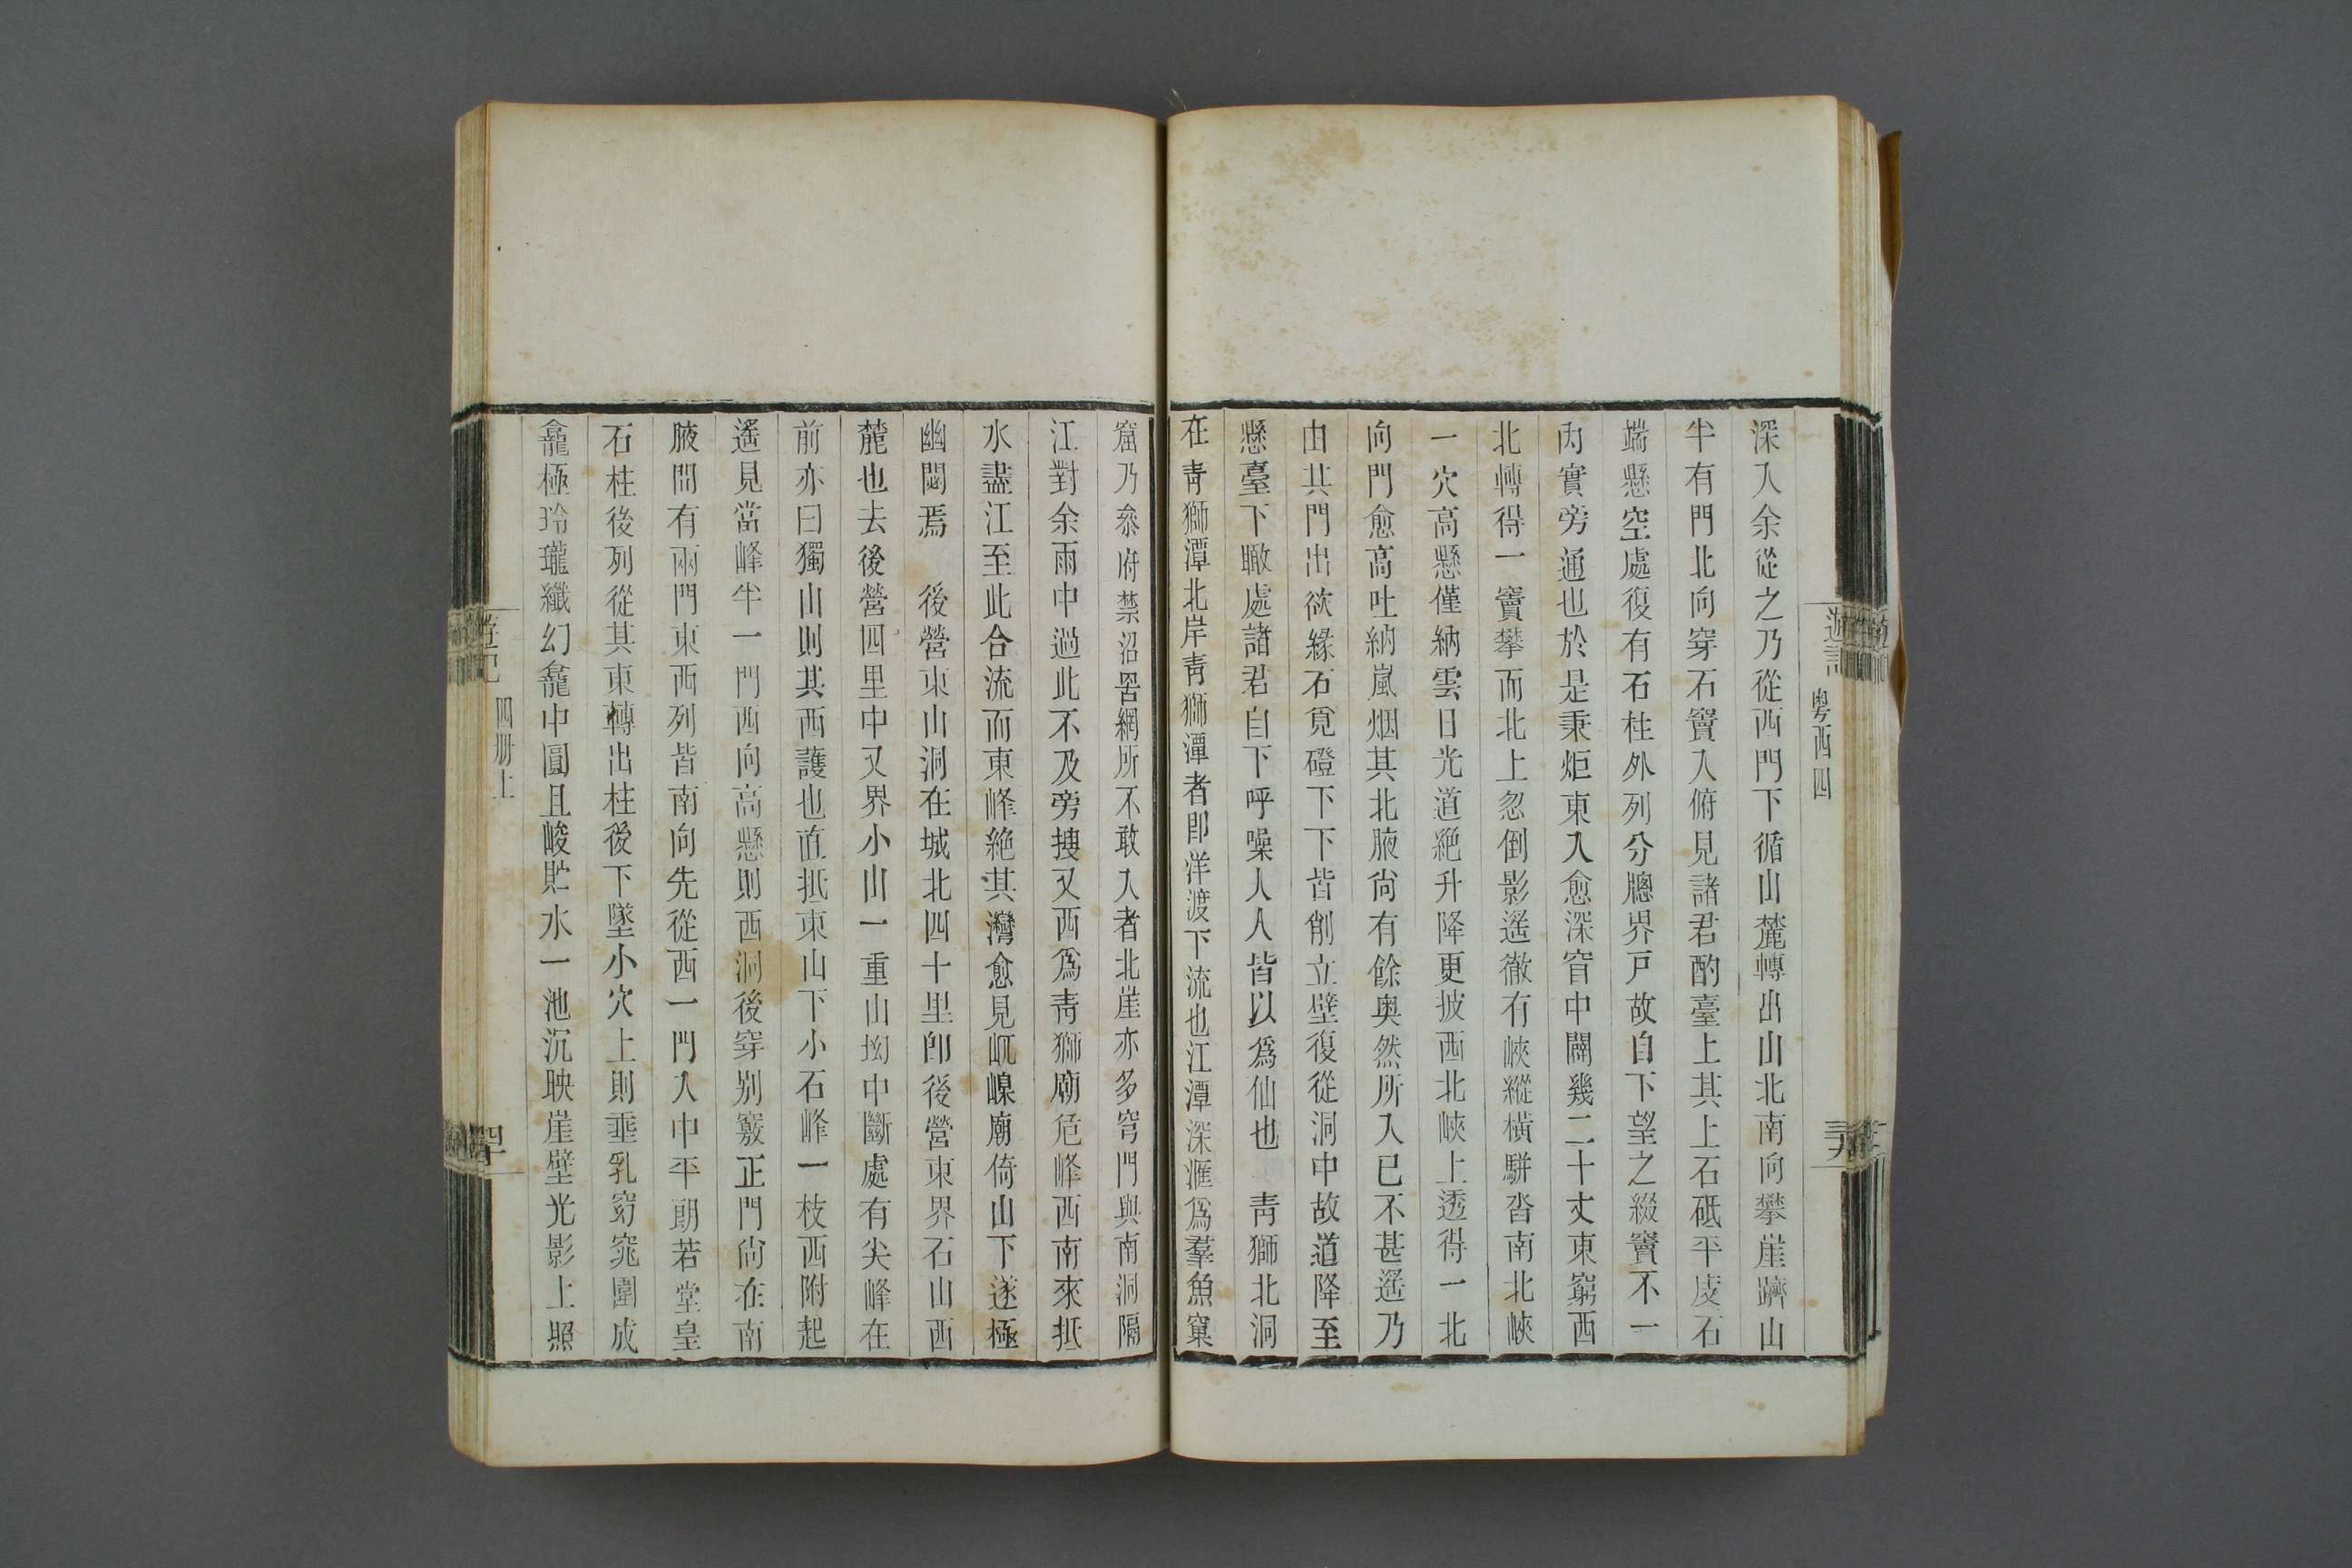 遊記
粤西四
三九
深入余從之乃從西門下循山麓轉出山北南向攀崖躋山
半有門北向穿石竇入俯見諸君酌臺上其上石砥平庋石
端懸空處復有石柱外列分牕界戸故自下望之綴竇不一
内實旁通也於是秉炬東入愈深窅中闢幾二十丈東窮西
北轉得一竇攀而北上忽倒影遙徹有峽縱橫駢沓南北峽
一穴高懸僅納雲日光道絶升降更披西北峽上透得一北
向門愈高吐納嵐烟其北腋尚有餘奥然所入已不甚遙乃
由其門出欲緣石覓磴下下皆削立壁復從洞中故道降至
懸臺下瞰處諸君自下呼噪人人皆以爲仙也　靑獅北洞
在靑獅潭北岸靑獅潭者卽洋渡下流也江潭深滙爲羣魚窠
窟乃叅府禁沼罟網所不敢入者北崖亦多穹門與南洞隔
江對余雨中過此不及旁搜又西爲靑獅廟危峰西南來抵
水盡江至此合流而東峰絶其灣愈見屼嵲廟倚山下遂極
幽閟焉　後營東山洞在城北四十里卽後營東界石山西
麓也去後營四里中又界小山一重山拗中斷處有尖峰在
前亦曰獨山則其西護也直抵東山下小石峰一枝西附起
遙見當峰半一門西向高懸則西洞後穿别竅正門尚在南
腋間有兩門東西列皆南向先從西一門入中平朗若堂皇
石柱後列從其東轉出柱後下墜小穴上則垂乳窈窕圍成
龕極玲瓏纖幻龕中圓且峻貯水一池沉映崖壁光影上照
遊記
四册上
四十